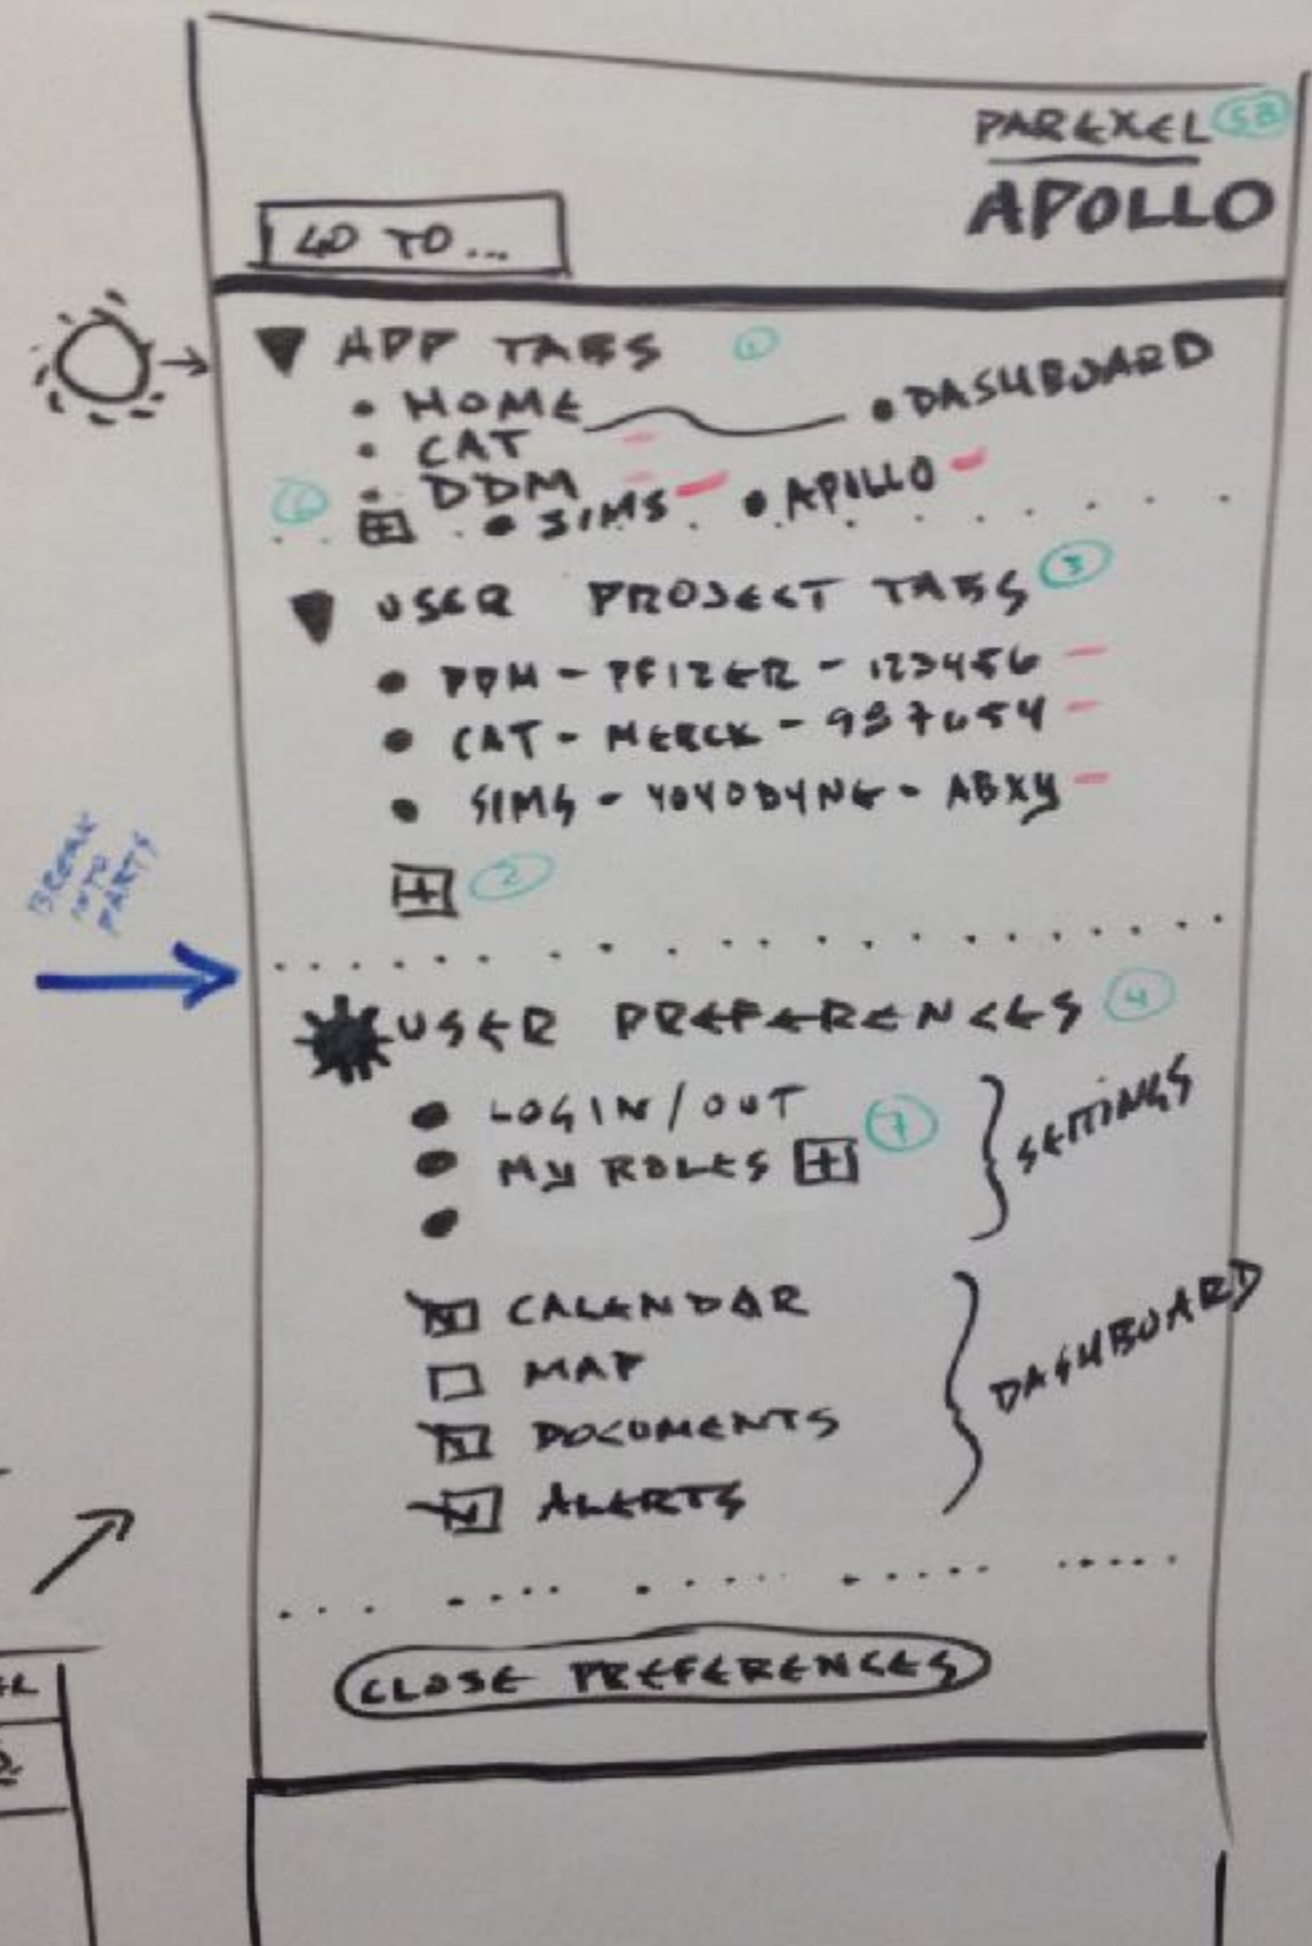 PAREXEL
APOLLO
GO TO...
APP TABS 1
• HOME • DASHBOARD
• CAT
• DDM
6 + • SIMS • APOLLO
USER PROJECT TABS 3
• DDM - PFIZER - 123456
• CAT - MERCK - 987654
• SIMS - YOYODYNE - ABXY
+ 2
BREAK
INTO
PARTS
USER PREFERENCES 4
• LOGIN/OUT
• MY ROLES + 7
SETTINGS
CALENDAR
MAP
DOCUMENTS
ALERTS
DASHBOARD
CLOSE PREFERENCES